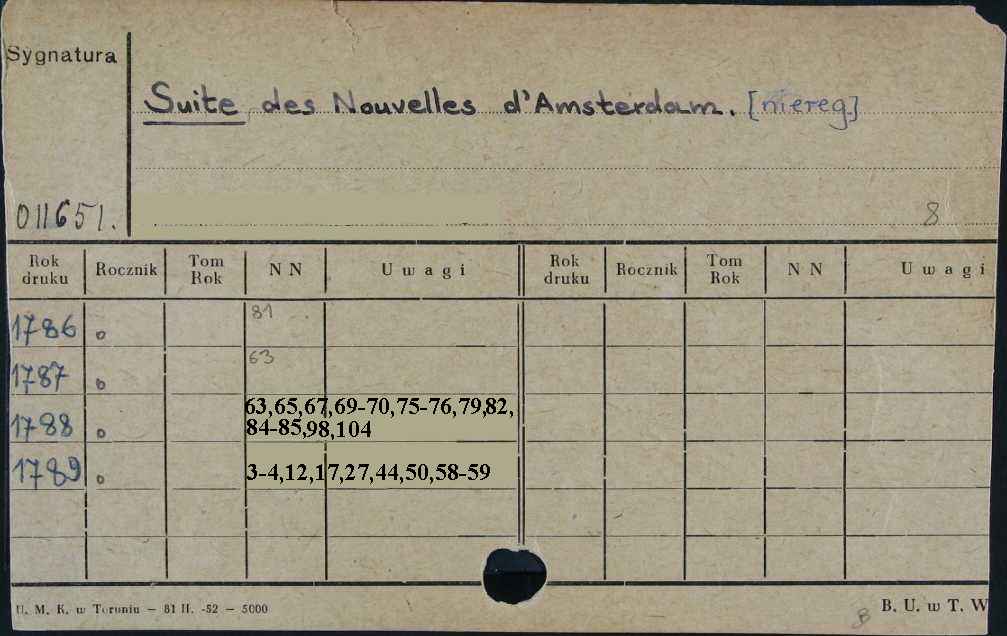 Sygnatura
Suite des Nouvelles d'Amsterdam. [niereg.]
011651.
8
Rok druku Rocznik Tom Rok N N U w a g i Rok druku Rocznik Tom Rok N N U w a g i
1786 o 81
1787 o 63
1788 o 63,65,67,69-70,75-76,79,82,
84-85,98,104
1789 o 3-4,12,17,27,44,50,58-59
U. M. K. w Toruniu — 81 II. -52 — 5000
8
B. U. w T. W